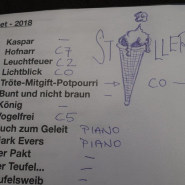 et - 2018
ST LLER
Kaspar –
Hofnarr C7
Leuchtfeuer C2
Lichtblick CO
Tröte-Mitgift-Potpourri CO –
Bunt und nicht braun –
König –
ogelfrei C5
uch zum Geleit PIANO
ark Evers PIANO
er Pakt –
er Teufel... –
eufelsweib –